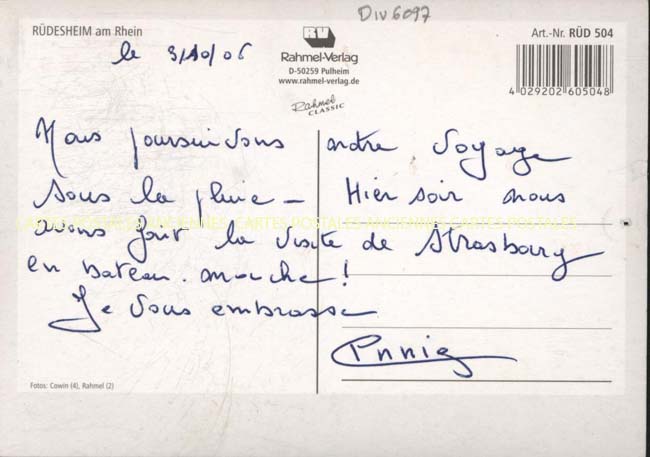 Div 6097
RÜDESHEIM am Rhein
RV
Rahmel-Verlag
D-50259 Pulheim
www.rahmel-verlag.de
Rahmel
CLASSIC
Art.-Nr. RÜD 504
4 029202 605048
le 3/10/06
Nous poursuivons notre voyage
sous la pluie - Hier soir nous
avons fait la visite de Strasbourg
en bateau-mouche!
Je vous embrasse
Annie
CARTES POSTALES ANCIENNES CARTES POSTALES ANCIENNES CARTES POSTALES
Fotos: Cowin (4), Rahmel (2)